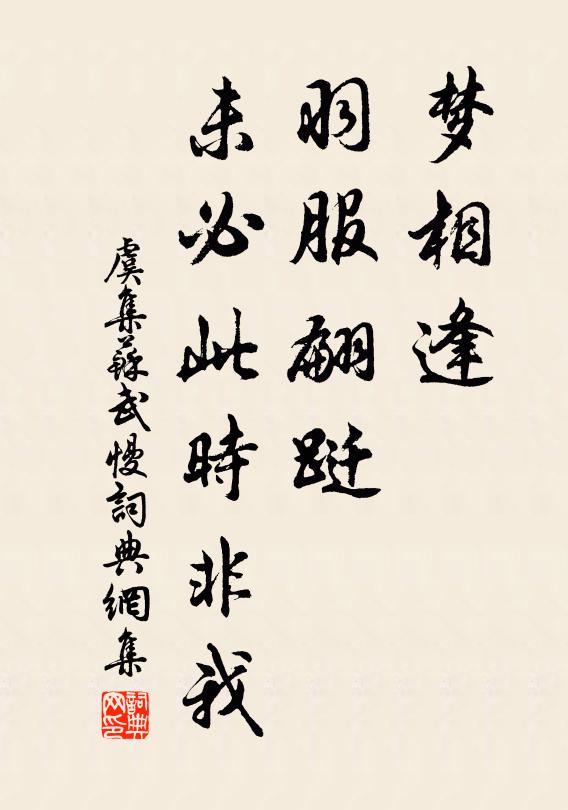 梦相逢
羽服翩跹
未必此時非我
虞集蘇武慢詞典網集
詞典网印